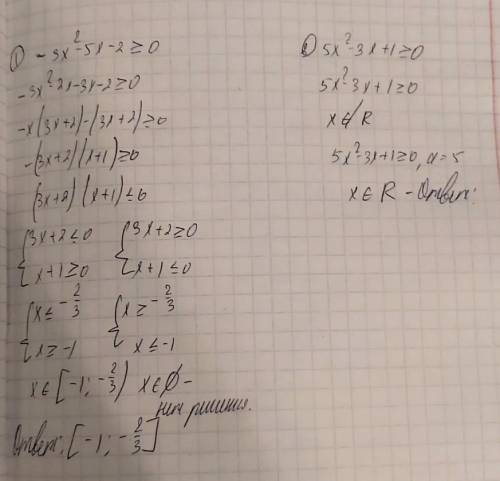 ① -3x²-5x-2≥0
-3x²-2x-3x-2≥0
-x(3x+2)-(3x+2)≥0
-(3x+2)(x+1)≥0
(3x+2)(x+1)≤0
{3x+2≤0 {3x+2≥0
x+1≥0 x+1≤0
{x≤-2/3 {x≥-2/3
x≥-1 x≤-1
x∈[-1;-2/3) x∈∅-
нет решения.
Ответ: [-1;-2/3]
5x²-3x+1≥0
5x²-3x+1≥0
x∉R
5x²-3x+1≥0, a=5
x∈R - Ответ: